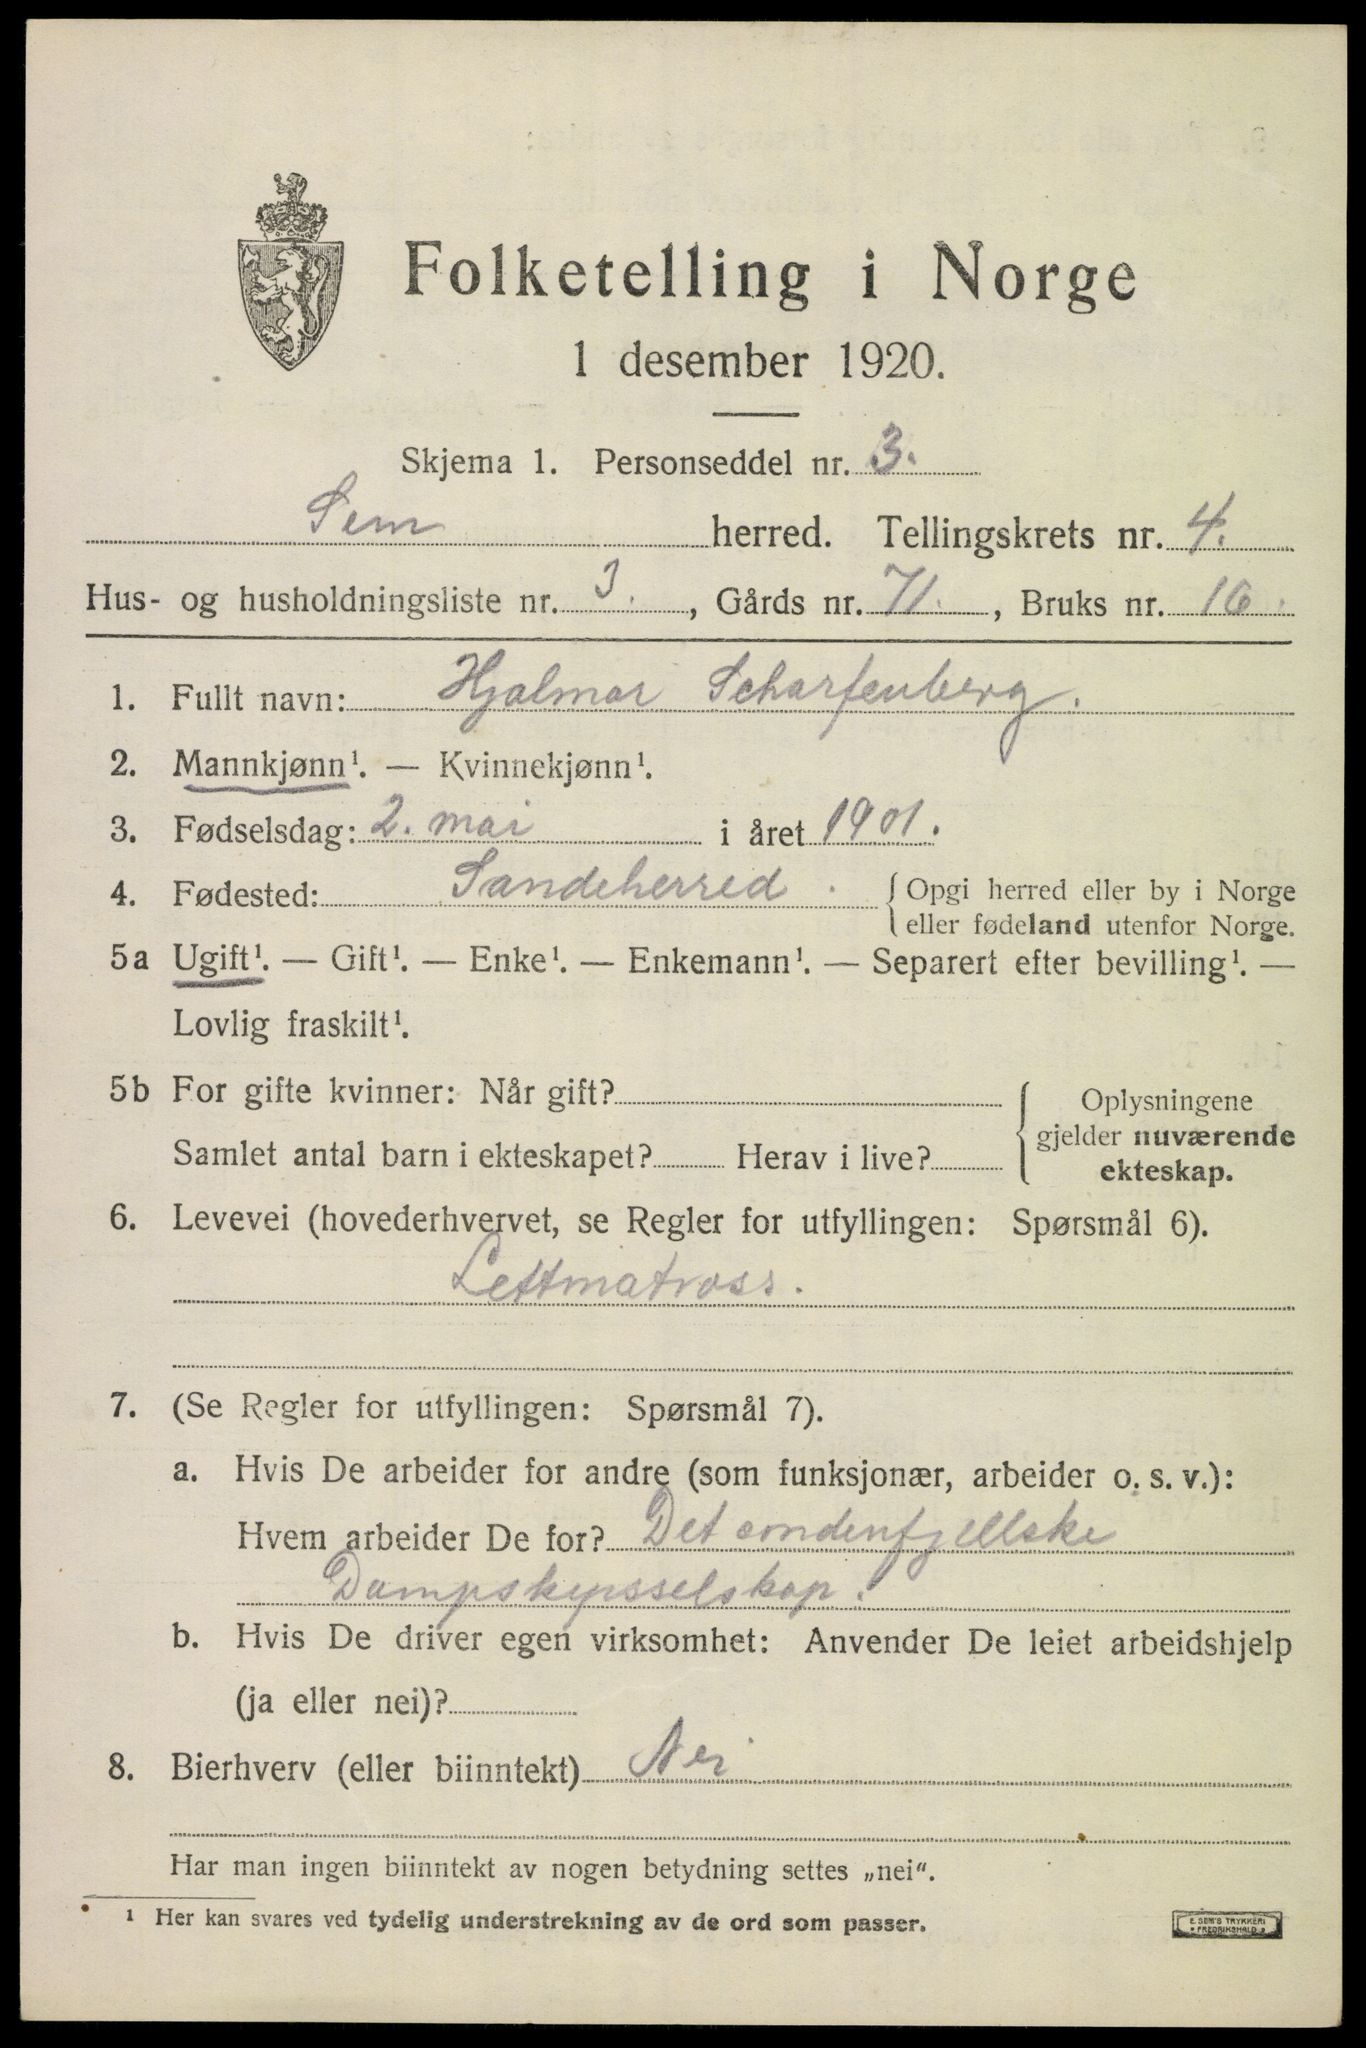 Folketelling i Norge
1 desember 1920.
Skjema 1. Personseddel nr. 3.
Sem herred. Tellingskrets nr. 4.
Hus- og husholdningsliste nr. 3., Gårds nr. 71., Bruks nr. 16.
1. Fullt navn: Hjalmar Scharfenberg.
2. Mannkjønn¹. — Kvinnekjønn¹.
3. Fødselsdag: 2. mai i året 1901.
4. Fødested: Sandeherred. {Opgi herred eller by i Norge
eller fødeland utenfor Norge.
5a Ugift¹. — Gift¹. — Enke¹. — Enkemann¹. — Separert efter bevilling¹. —
Lovlig fraskilt¹.
5b For gifte kvinner: Når gift? Oplysningene
gjelder nuværende
Samlet antal barn i ekteskapet? Herav i live?
ekteskap.
6. Levevei (hovederhvervet, se Regler for utfyllingen: Spørsmål 6).
Lettmatross.
7. (Se Regler for utfyllingen: Spørsmål 7).
a. Hvis De arbeider for andre (som funksjonær, arbeider o. s. v.):
Hvem arbeider De for? Det søndenfjellske
Dampskipsselskap.
b. Hvis De driver egen virksomhet: Anvender De leiet arbeidshjelp
(ja eller nei)?
8. Bierhverv (eller biinntekt) Nei
Har man ingen biinntekt av nogen betydning settes „nei“.
¹ Her kan svares ved tydelig understrekning av de ord som passer.
E. SEM'S TRYKKERI
FREDRIKSHALD